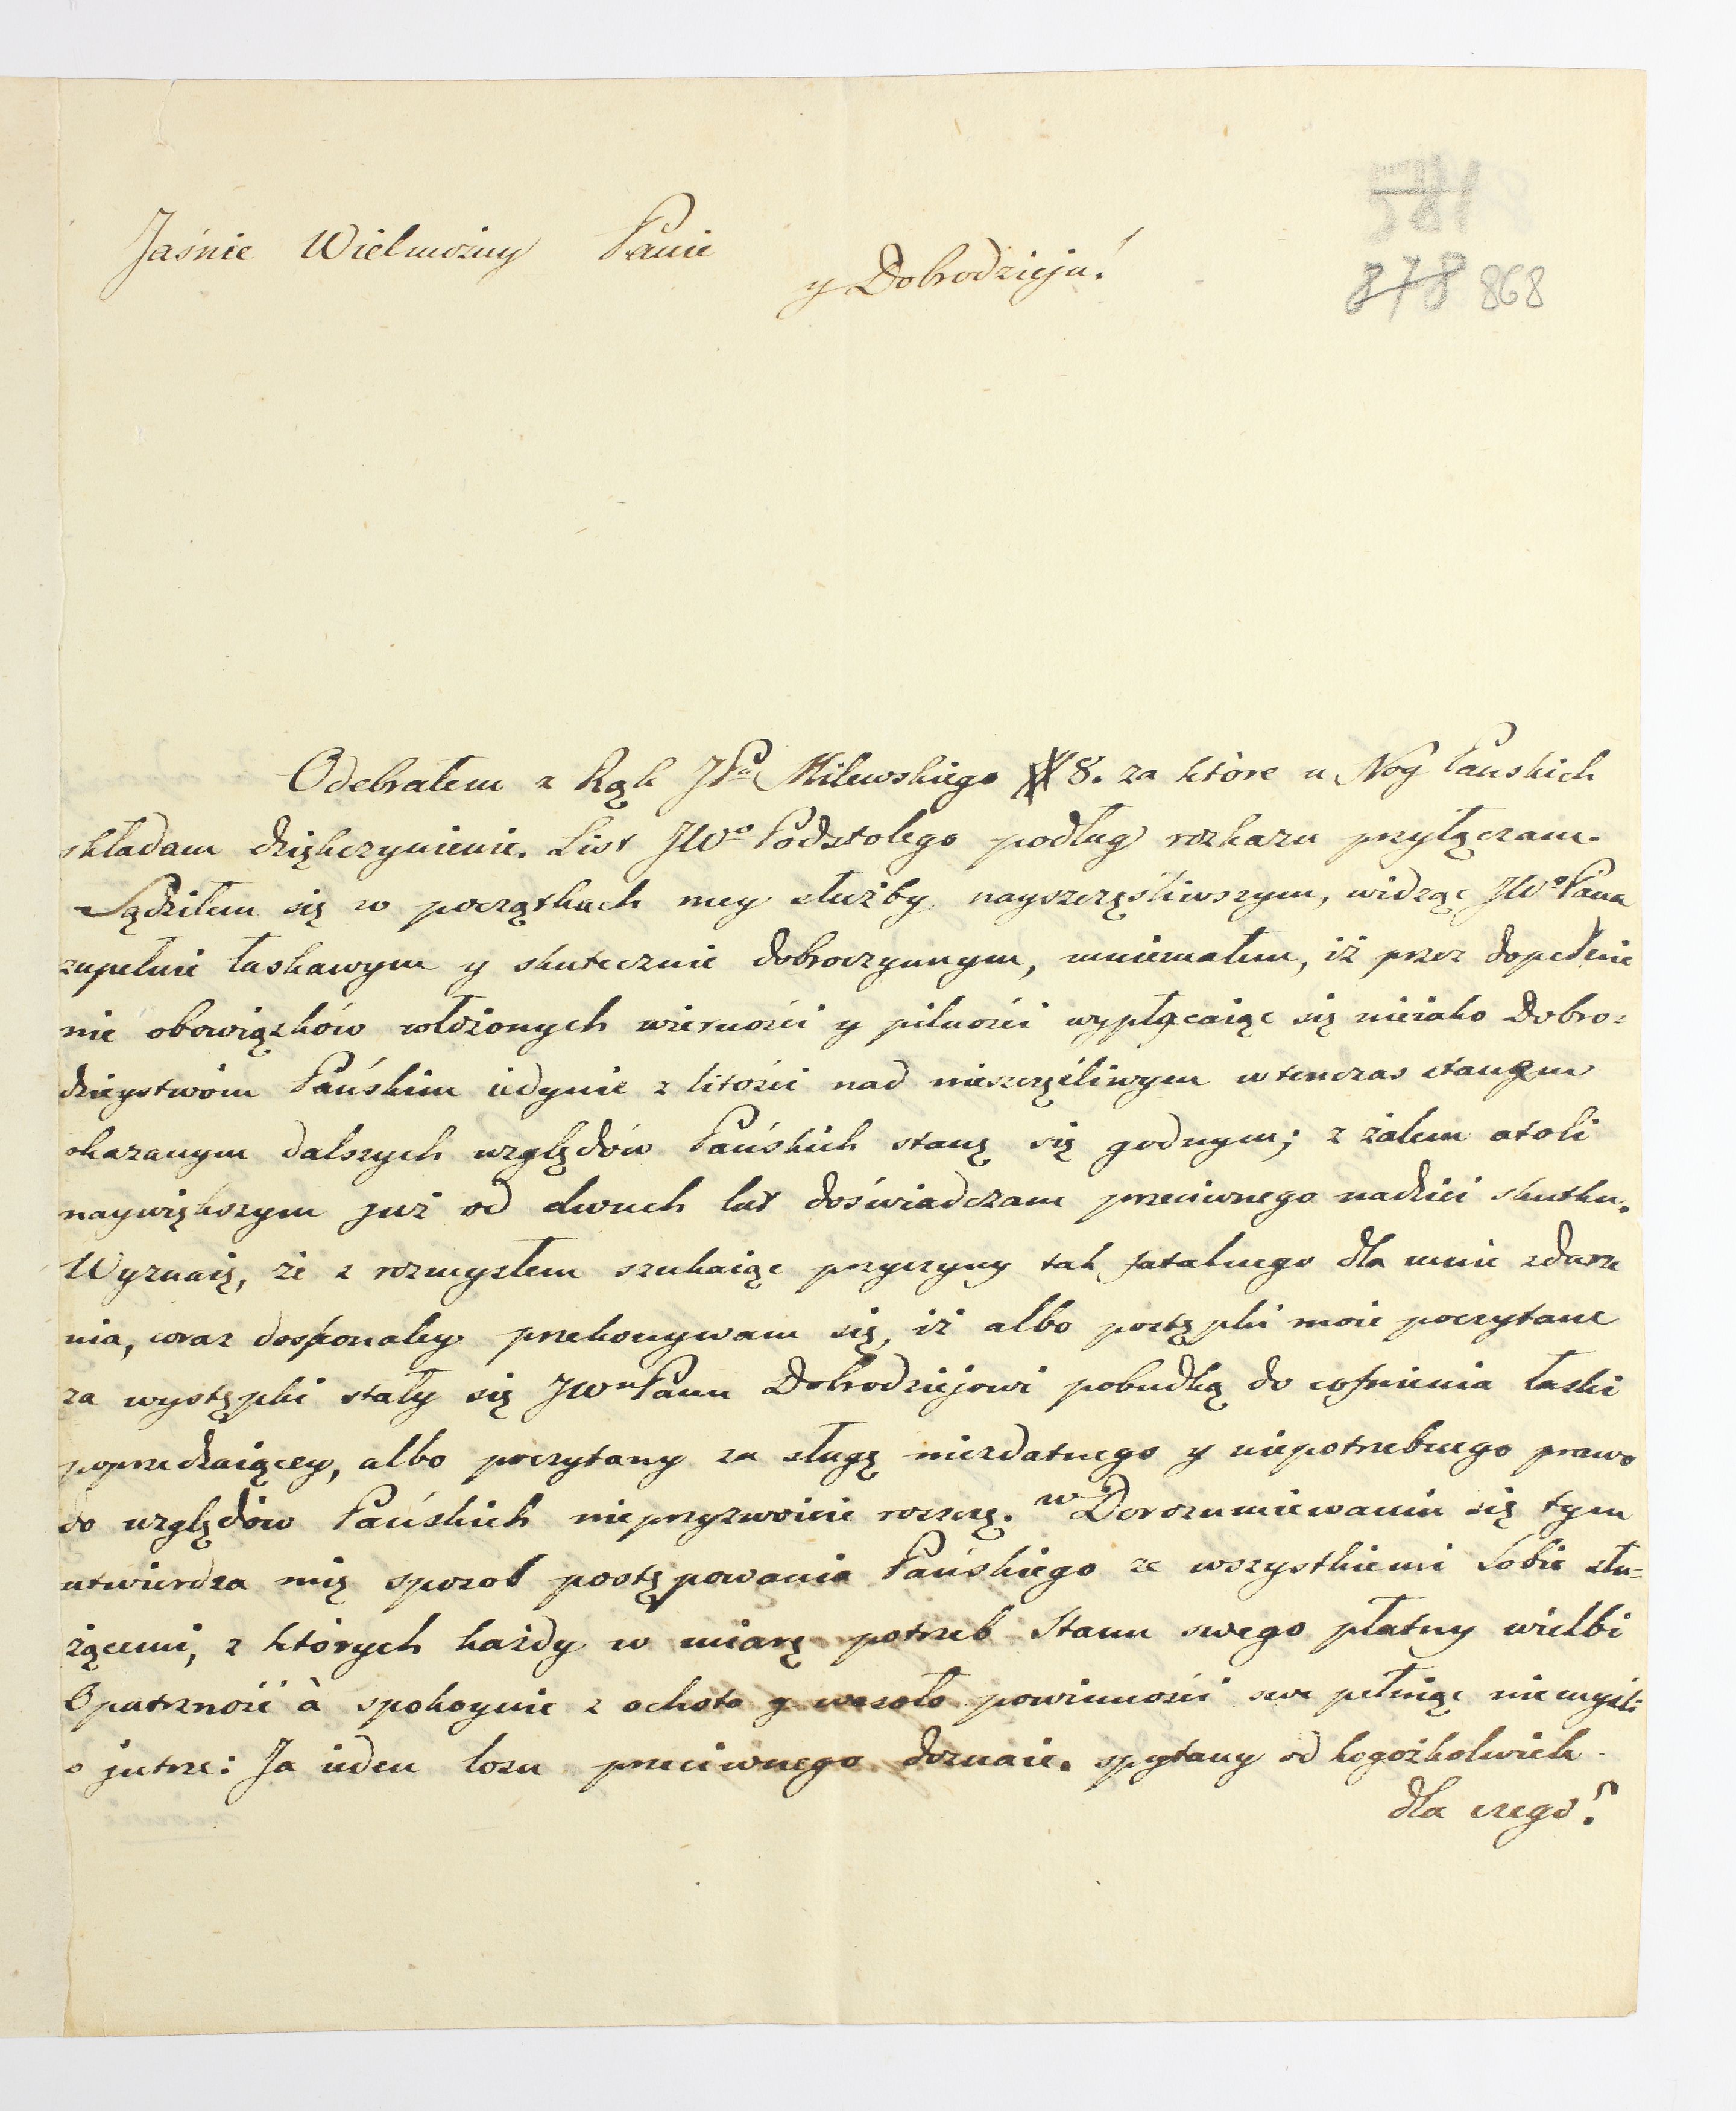 581
878 868
Jaśnie Wielmożny Panie
y Dobrodzieju!
Odebrałem z Rąk JPa Milewskiego 8. za które u Nóg Pańskich
składam dziękczynienie. List JWo Podstolego podług rozkazu przyłączam.
Sądziłem się w początkach mey służby nayszczęśliwszym, widząc JWo Pana
zupełnie łaskawym y skutecznie dobroczynnym, mniemałem, iż przez dopełnie
nie obowiązków włożonych wierności y pilności wypłącaiąc się nieiako Dobro=
dzieystwóm Pańskim iedynie z litości nad nieszczęśliwym wtenczas stanem
okazanym dalszych względów Pańskich stanę się godnym; z żalem atoli
naywiększym już od dwuch lat doświadczam przeciwnego nadziei skutku.
Wyznaię, że z rozmysłem szukaiąc przyczyny tak fatalnego dla mnie zdarze
nia, coraz doskonaley przekonywam się, iż albo postępki moie poczytane
za występki stały się JWu Panu Dobrodziejowi pobudką do cofnienia łaski
poprzedzaiącey, albo poczytany za sługę niezdatnego y niepotrzebnego prawo
do względów Pańskich nieprzyzwoicie roszczę. w Dorozumiewaniu się tym
utwierdza mię sposob postępowania Pańskiego ze wszystkiemi Sobie słu=
żącemi, z których każdy w miarę potrzeb Stanu swego płatny wielbi
Opatrzność à spokoynie z ochoto y wesoło powinności swe pełniąc niemyśli
o jutrze: Ja ieden losu przeciwnego doznaie. spytany od kogożkolwiek
dla czego?